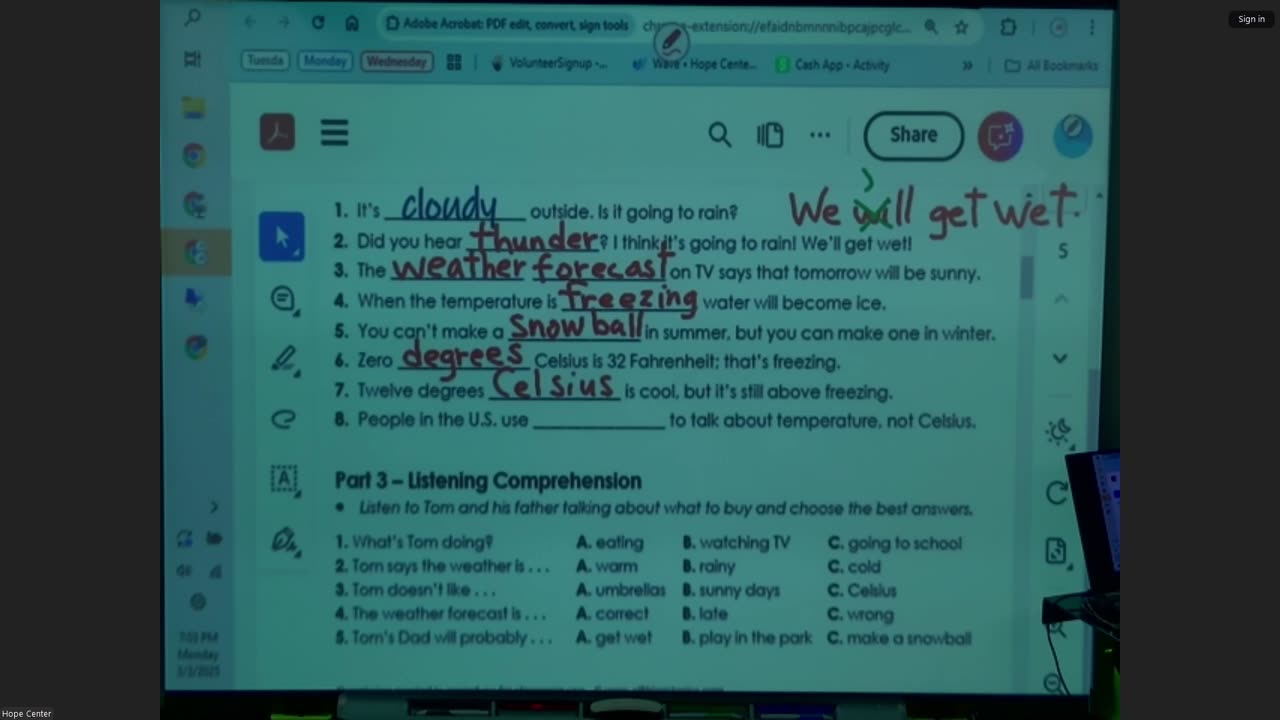 Sign in
Adobe Acrobat: PDF edit, convert, sign tools
-extension://efaidnbmnnnibpcajpcglc...
Tuesda Monday Wednesday VolunteerSignup -... Wave • Hope Cente... Cash App • Activity » All Bookmarks
Share
We will get wet.
1. It's cloudy outside. Is it going to rain?
2. Did you hear thunder? I think it's going to rain! We'll get wet!
5
3. The weather forecast on TV says that tomorrow will be sunny.
4. When the temperature is freezing water will become ice.
5. You can't make a snowball in summer, but you can make one in winter.
6. Zero degrees Celsius is 32 Fahrenheit; that's freezing.
7. Twelve degrees Celsius is cool, but it's still above freezing.
8. People in the U.S. use ____________ to talk about temperature, not Celsius.
Part 3 – Listening Comprehension
• Listen to Tom and his father talking about what to buy and choose the best answers.
1. What's Tom doing? A. eating B. watching TV C. going to school
2. Tom says the weather is . . . A. warm B. rainy C. cold
3. Tom doesn't like . . . A. umbrellas B. sunny days C. Celsius
4. The weather forecast is . . . A. correct B. late C. wrong
5. Tom's Dad will probably . . . A. get wet B. play in the park C. make a snowball
7:03 PM
Monday
3/3/2025
Hope Center